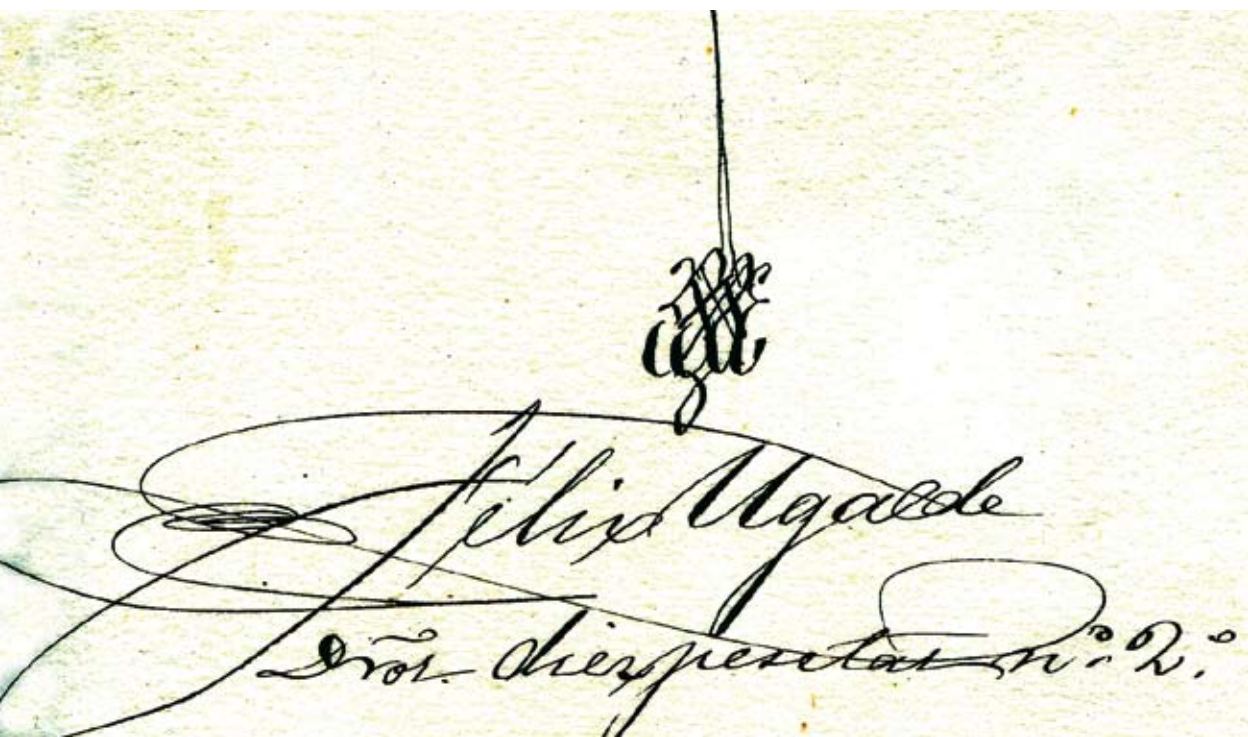 Félix Ugalde
Dr̃os. diez pesetas n.º 2.º